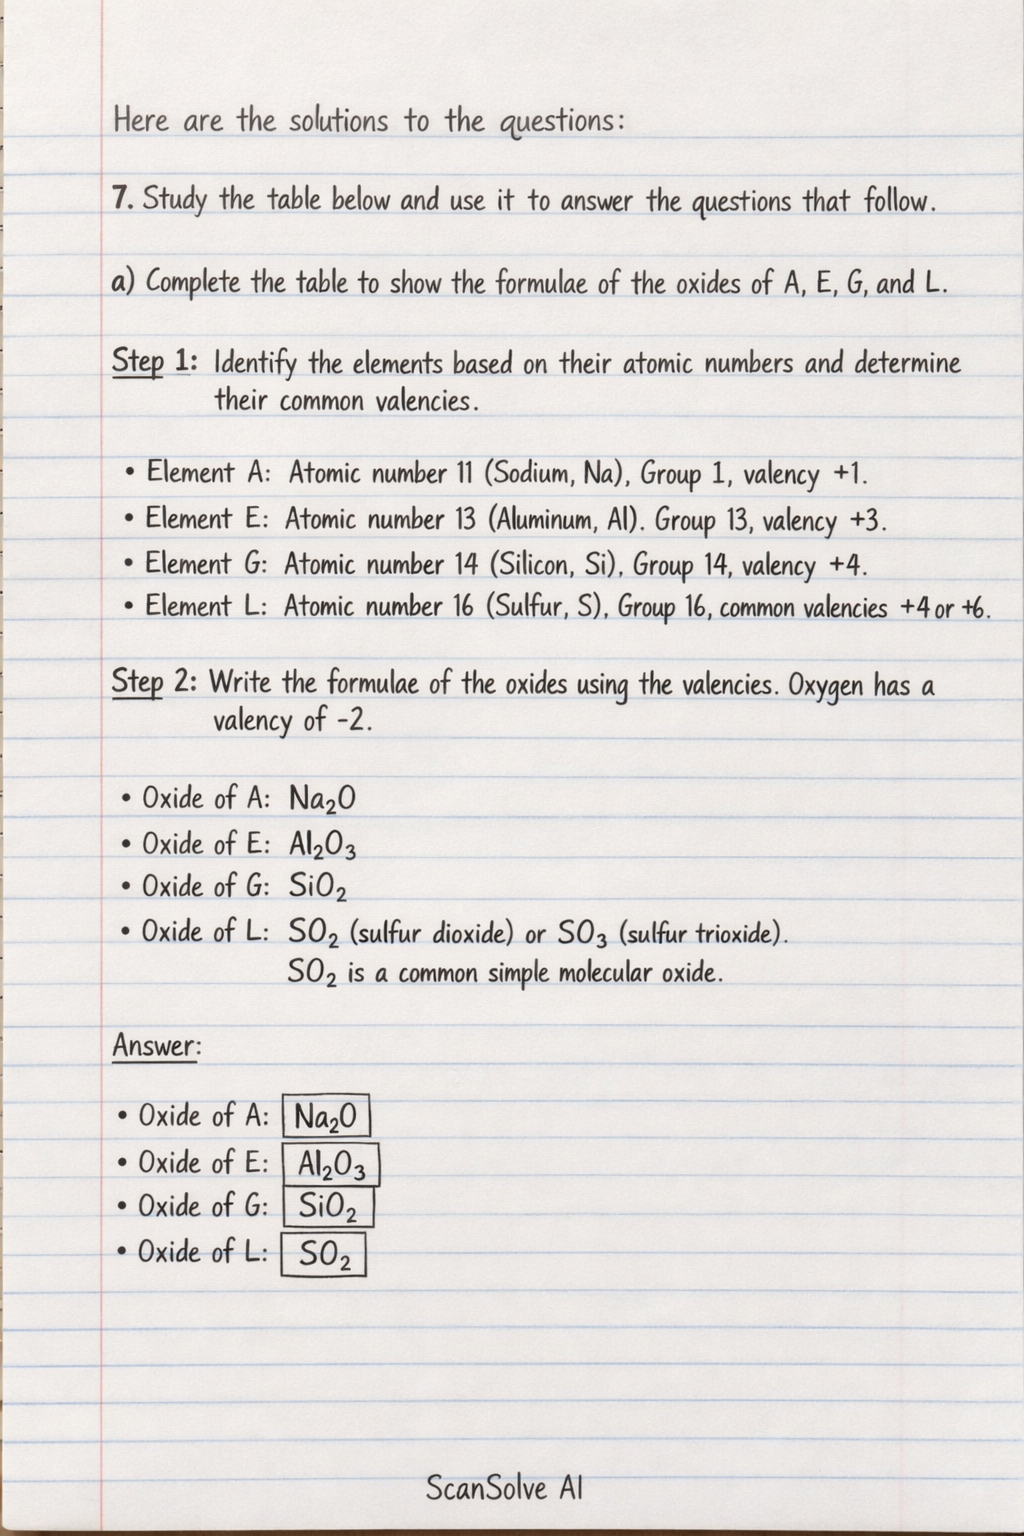 Here are the solutions to the questions:
7. Study the table below and use it to answer the questions that follow.
a) Complete the table to show the formulae of the oxides of A, E, G, and L.
Step 1: Identify the elements based on their atomic numbers and determine
their common valencies.
• Element A: Atomic number 11 (Sodium, Na), Group 1, valency +1.
• Element E: Atomic number 13 (Aluminum, Al). Group 13, valency +3.
• Element G: Atomic number 14 (Silicon, Si), Group 14, valency +4.
• Element L: Atomic number 16 (Sulfur, S), Group 16, common valencies +4 or +6.
Step 2: Write the formulae of the oxides using the valencies. Oxygen has a
valency of -2.
• Oxide of A: Na₂O
• Oxide of E: Al₂O₃
• Oxide of G: SiO₂
• Oxide of L: SO₂ (sulfur dioxide) or SO₃ (sulfur trioxide).
SO₂ is a common simple molecular oxide.
Answer:
• Oxide of A: Na₂O
• Oxide of E: Al₂O₃
• Oxide of G: SiO₂
• Oxide of L: SO₂
ScanSolve AI